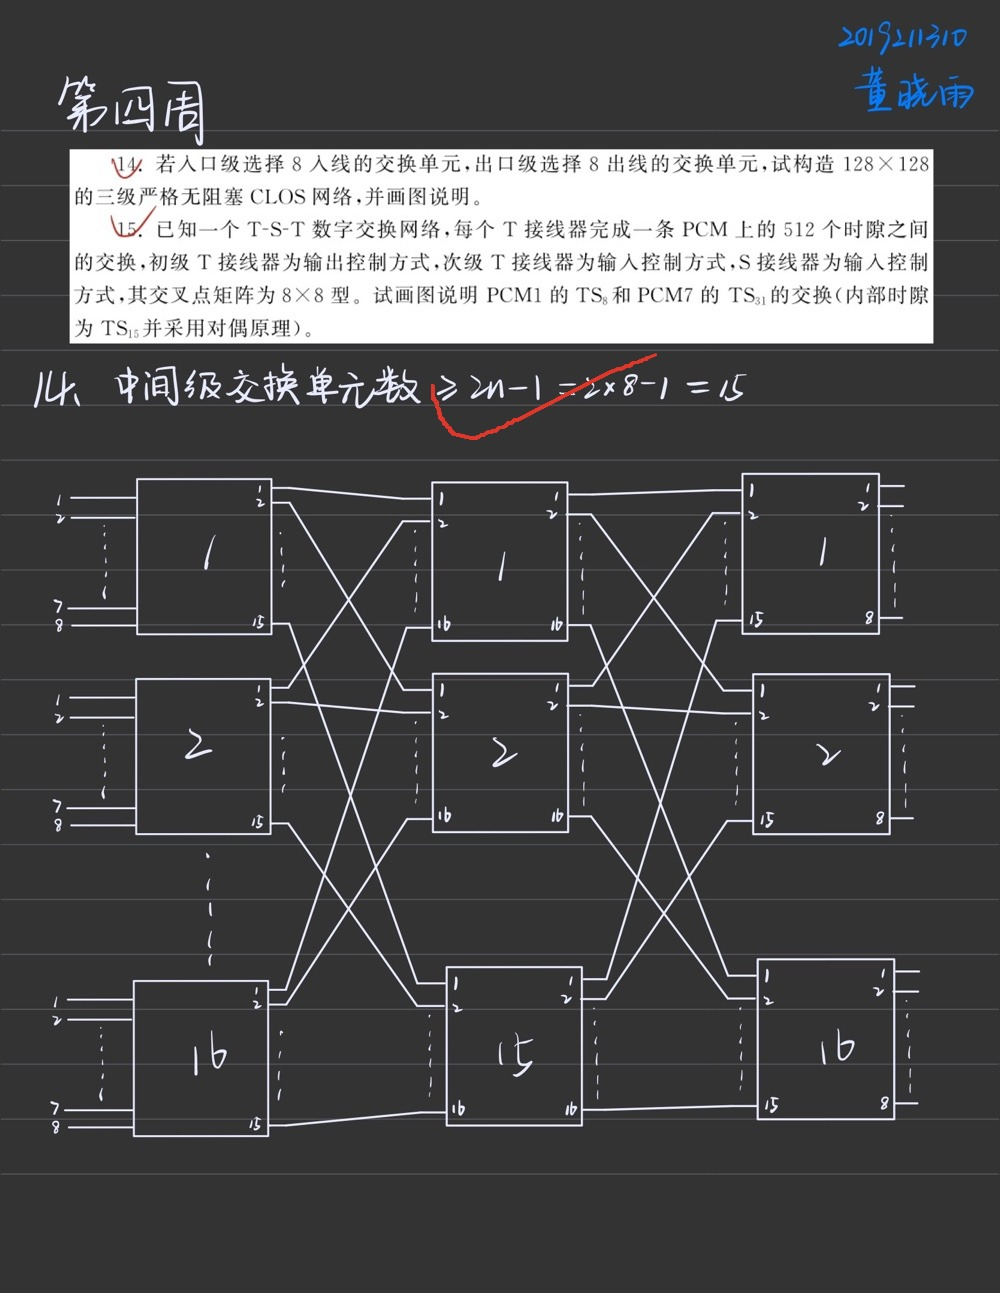 2019211310
董晓雨
第四周
14. 若入口级选择 8 入线的交换单元,出口级选择 8 出线的交换单元,试构造 128×128
的三级严格无阻塞 CLOS 网络,并画图说明。
15. 已知一个 T-S-T 数字交换网络,每个 T 接线器完成一条 PCM 上的 512 个时隙之间
的交换,初级 T 接线器为输出控制方式,次级 T 接线器为输入控制方式,S 接线器为输入控制
方式,其交叉点矩阵为 8×8 型。试画图说明 PCM1 的 TS₈ 和 PCM7 的 TS₃₁ 的交换(内部时隙
为 TS₁₅ 并采用对偶原理)。
14、中间级交换单元数 ≥ 2n-1 = 2×8-1 = 15
1 1 1 1 1
2 2 2 2 2
2
1 1 1
7
8 15 16 16 15 8
1 1 1 1 1 1
2 2 2 2 2 2
2 2 2
7
8 15 16 16 15 8
1 1 1 1 1 1
2 2 2 2 2 2
16 15 16
7
8 15 16 16 15 8